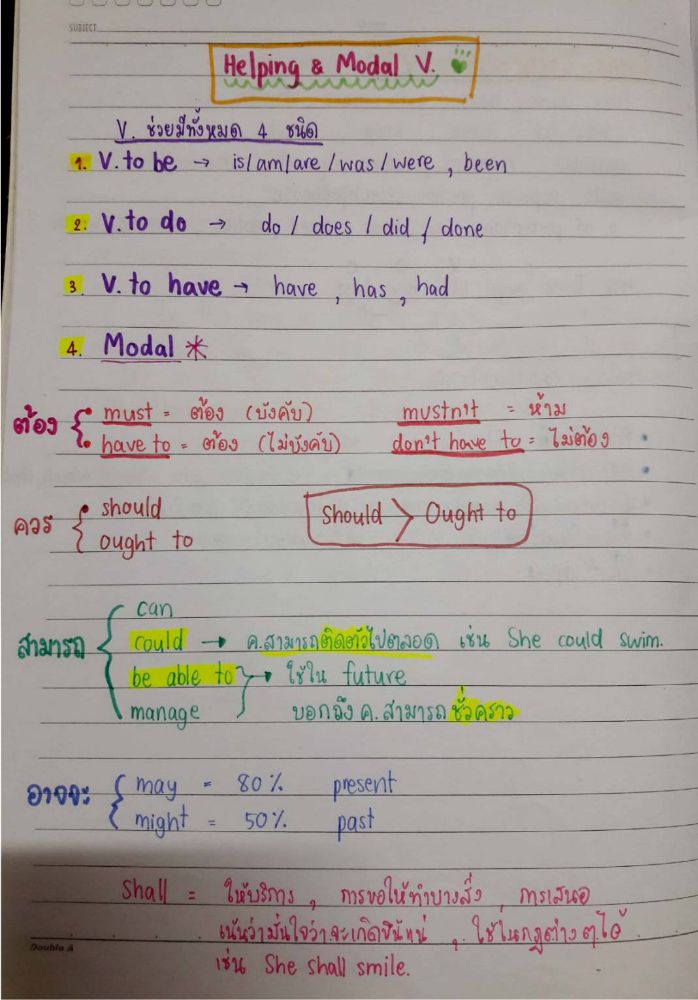 SUBJECT
Helping & Modal V.
V. ช่วยมีทั้งหมด 4 ชนิด
1. V. to be → is/am/are/was/were, been
2. V. to do → do / does / did / done
3. V. to have → have, has, had
4. Modal *
ต้อง
• must = ต้อง (บังคับ) mustn't = ห้าม
• have to = ต้อง (ไม่บังคับ) don't have to = ไม่ต้อง
ควร
• should
ought to
Should > Ought to
สามารถ
can
could → ค.สามารถติดตัวไปตลอด เช่น She could swim.
be able to → ใช้ใน future
manage บอกถึง ค.สามารถชั่วคราว
อาจจะ
may = 80% present
might = 50% past
Shall = ให้บริการ, การขอให้ทำบางสิ่ง, การเสนอ
เน้นว่ามั่นใจว่าจะเกิดขึ้นแน่, ใช้ในกฎต่าง ๆ ได้
เช่น She shall smile.
Double A